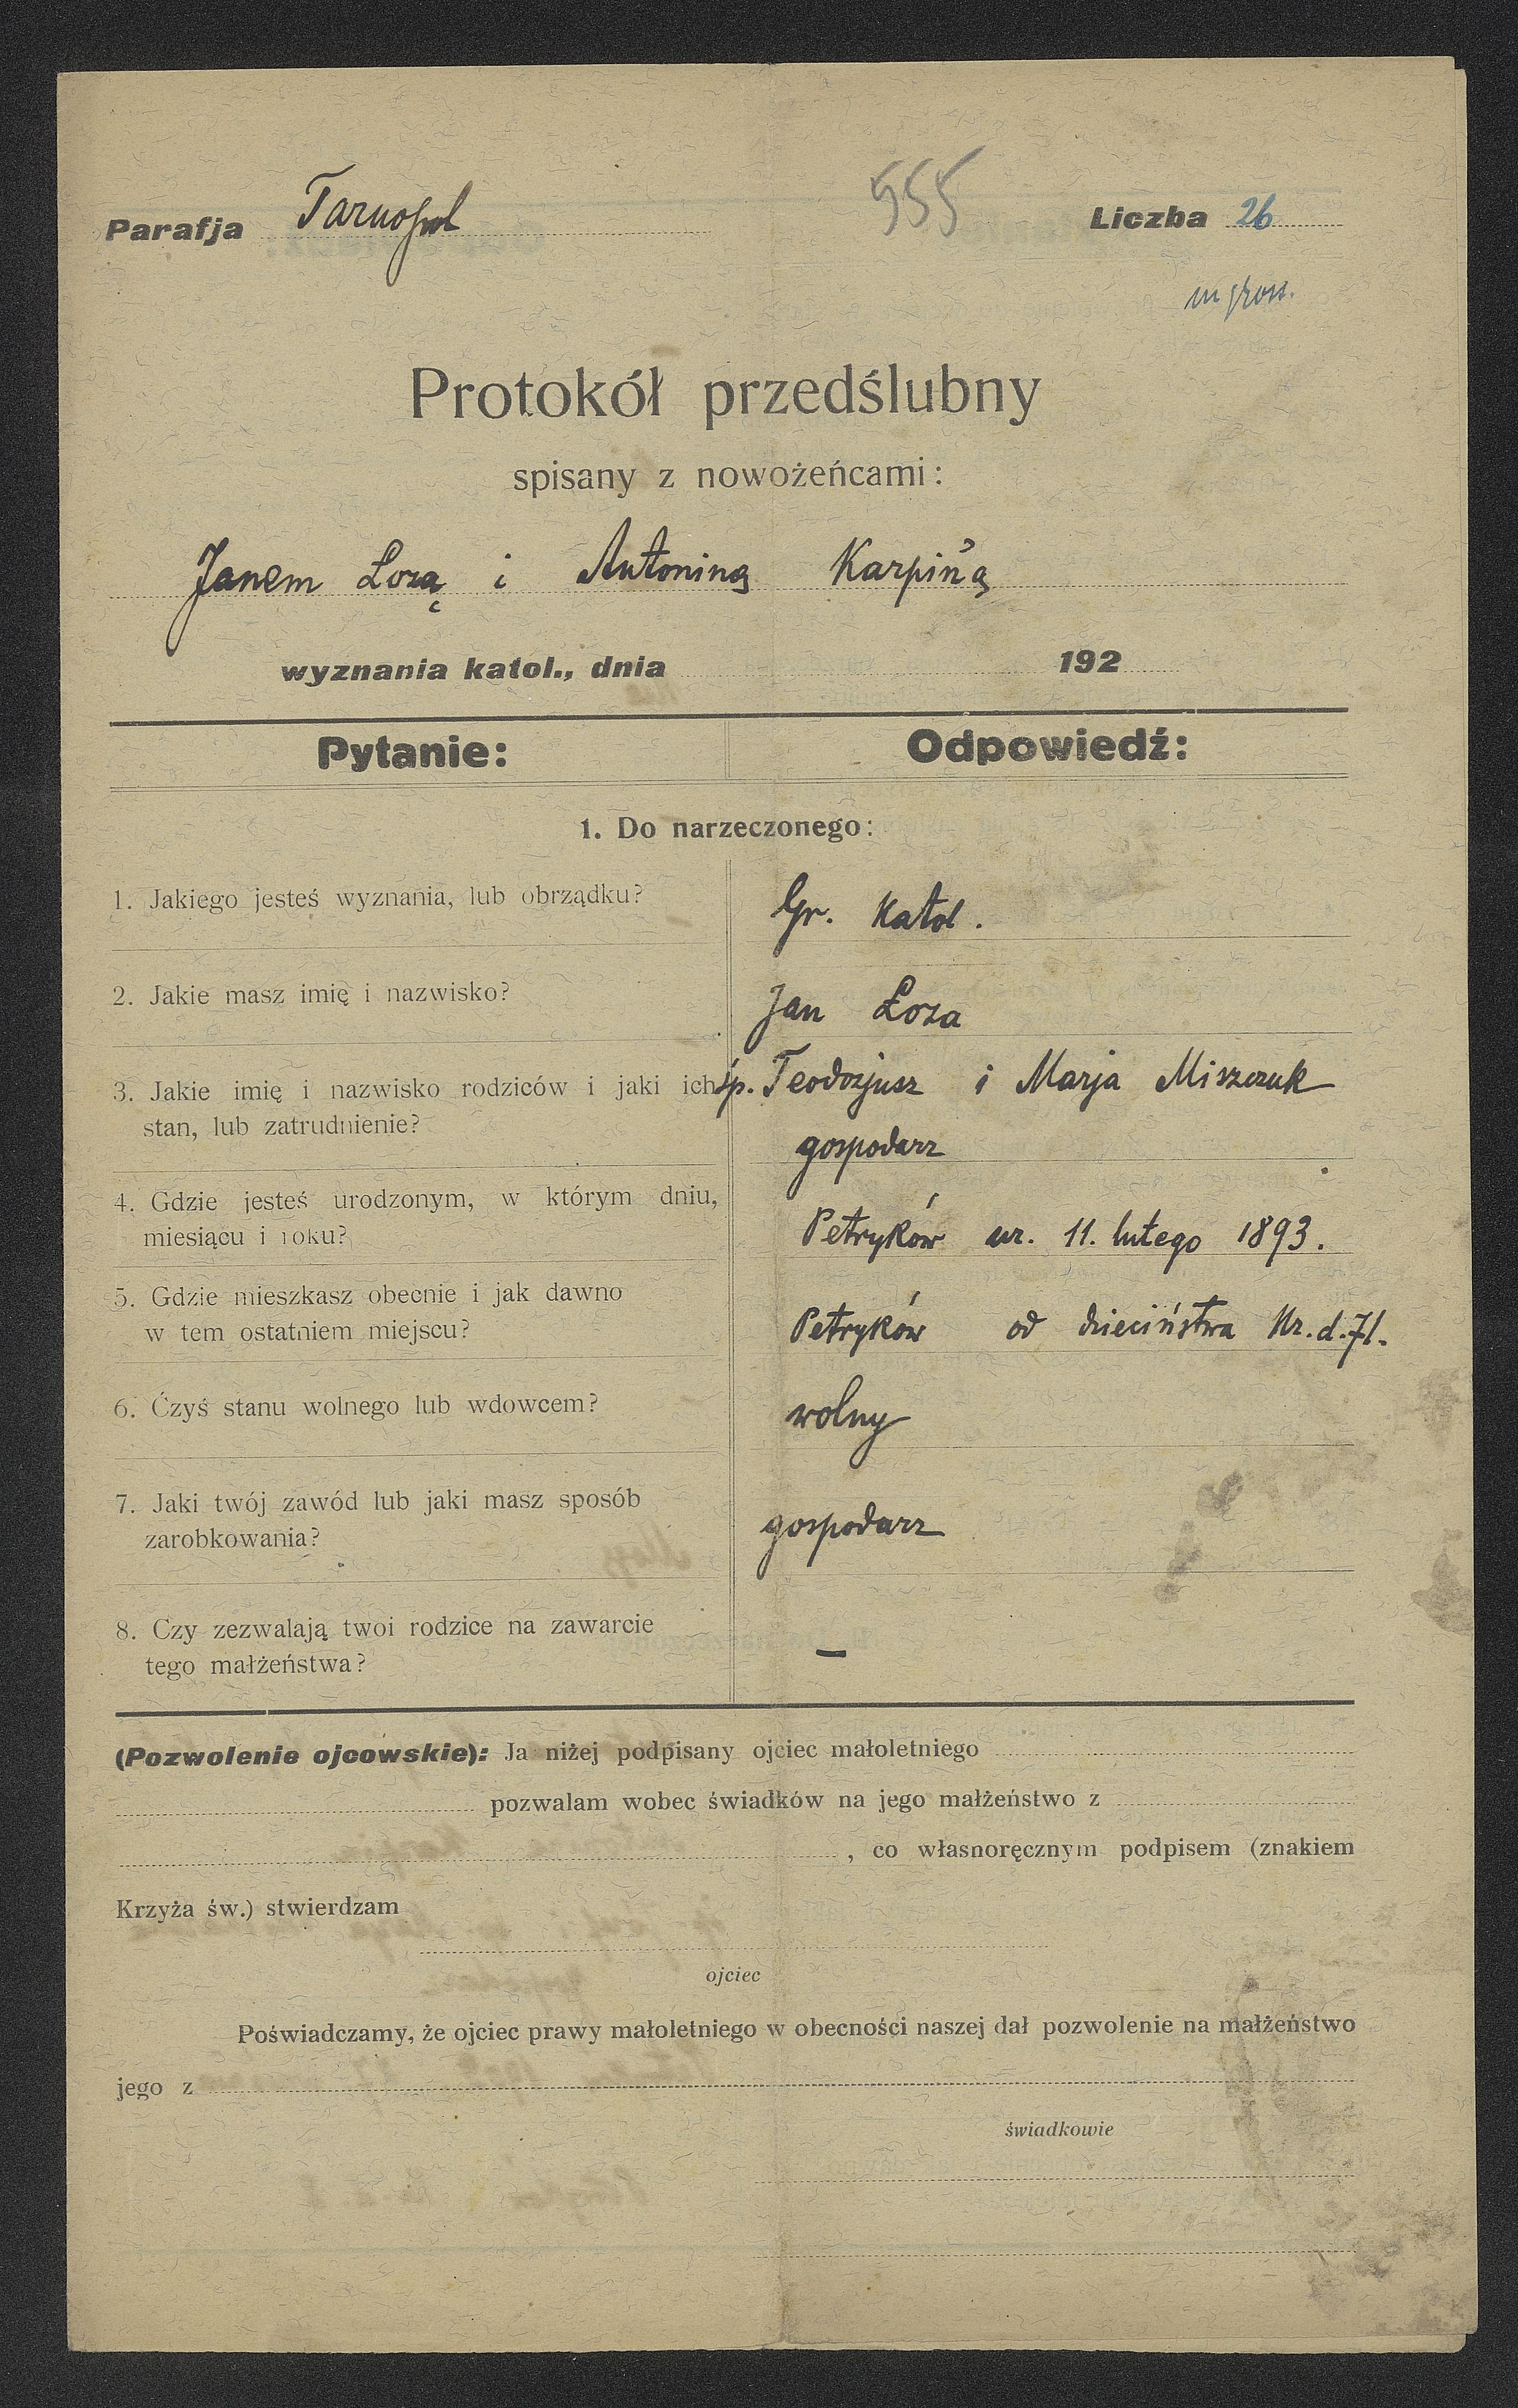 Parafja Tarnopol 555 Liczba 26
Protokół przedślubny
spisany z nowożeńcami:
Janem Łozą i Antoniną Karpińą
wyznania katol., dnia 192
Pytanie: Odpowiedź:
1. Do narzeczonego:
1. Jakiego jesteś wyznania, lub obrządku? Gr. katol.
2. Jakie masz imię i nazwisko? Jan Łoza
3. Jakie imię i nazwisko rodziców i jaki ich śp. Teodozjusz i Marja Miszczuk
stan, lub zatrudnienie? gospodarz
4. Gdzie jesteś urodzonym, w którym dniu,
miesiącu i roku? Petryków ur. 11. lutego 1893.
5. Gdzie mieszkasz obecnie i jak dawno
w tem ostatniem miejscu? Petryków od dzieciństwa Nr. d. 71.
6. Czyś stanu wolnego lub wdowcem? wolny
7. Jaki twój zawód lub jaki masz sposób
zarobkowania? gospodarz
8. Czy zezwalają twoi rodzice na zawarcie
tego małżeństwa? —
(Pozwolenie ojcowskie): Ja niżej podpisany ojciec małoletniego
pozwalam wobec świadków na jego małżeństwo z
, co własnoręcznym podpisem (znakiem
Krzyża św.) stwierdzam
ojciec
Poświadczamy, że ojciec prawy małoletniego w obecności naszej dał pozwolenie na małżeństwo
jego z
świadkowie